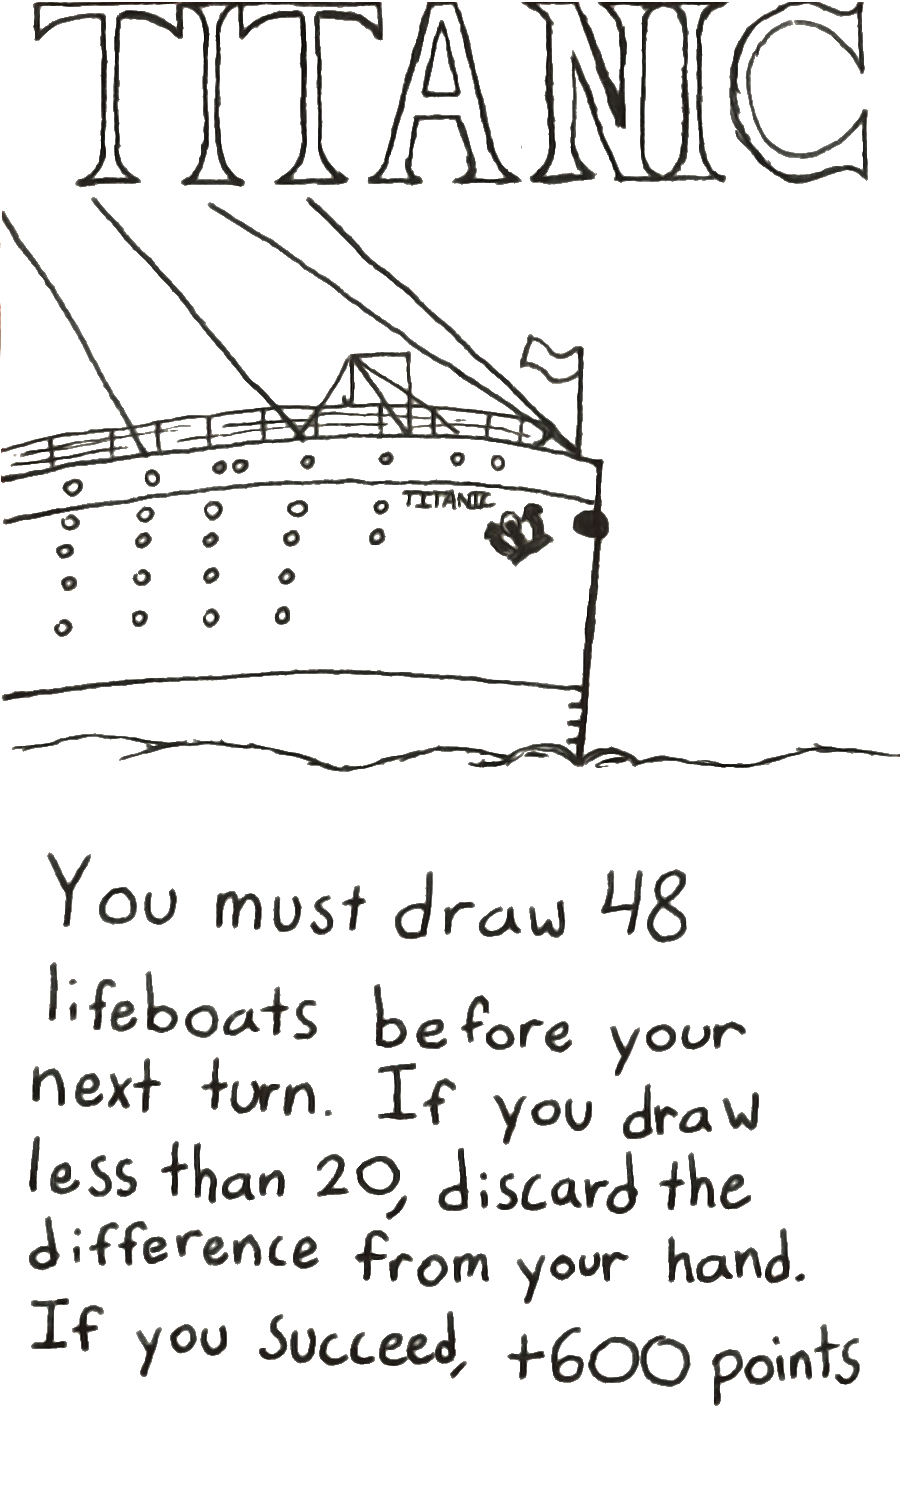 TITANIC
TITANIC
You must draw 48
lifeboats before your
next turn. If you draw
less than 20, discard the
difference from your hand.
If you succeed, +600 points